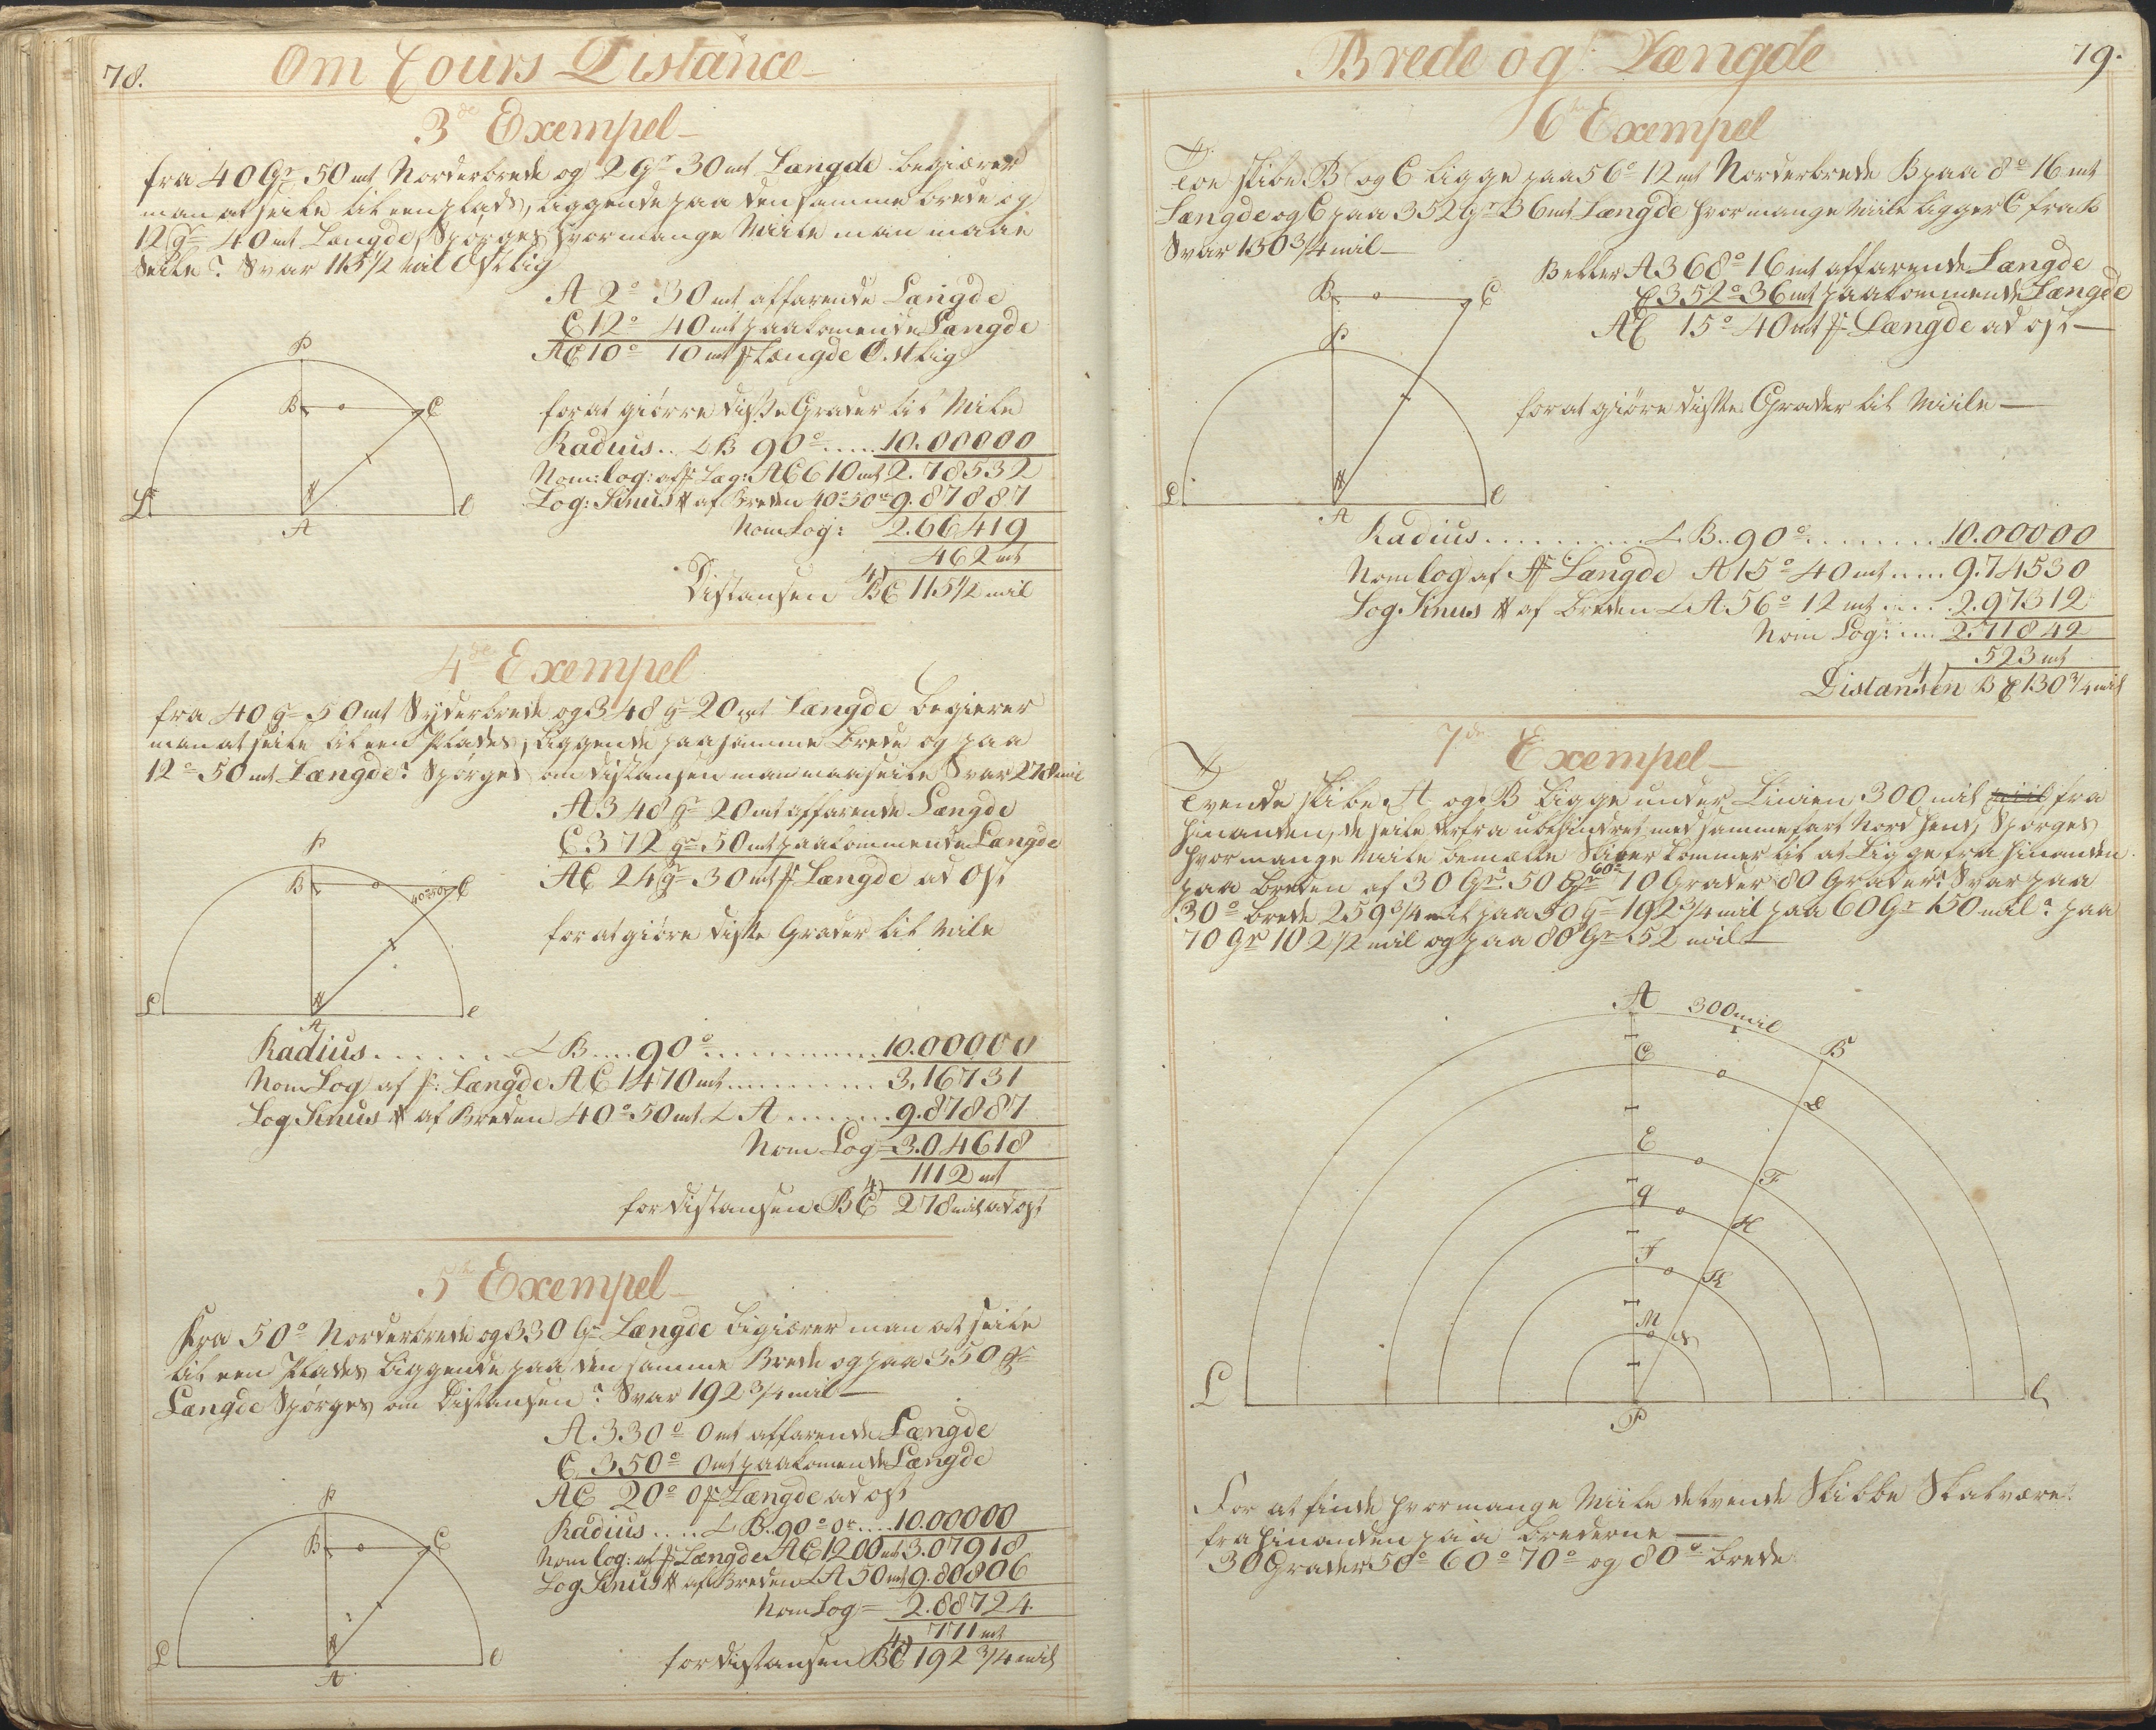 78.
Om Cours Distance
3de Exempel
fra 40 Gr 50 mt Norderbrede og 2 Gr 30 mt Længde begiærer
man at seile til een plads, liggende paa den samme brede og
12 gr 40 mt Længde, Spørges hvor mange Miile man maae
Seile? Svar 115 1/2 mil Østlig
A 2° 30 mt affarende Længde
C 12° 40 mt paakomende Længde
AC 10° 10 mt fr Længde Østlig
for at giørre disse Grader til Mile
Radius .. L B 90° ..... 10.00000
Nom: log: af fr Læg: AC 610 mt 2.78532
Log: Sinus # af Breden 40° 50 mt 9.87887
Nom Log: 2.66419
462 mt
4)
Distansen BC 115 1/2 mil
P
B
C
Æ
A
4de Exempel
fra 40 g 50 mt Syderbrede og 348 g 20 mt Længde begierer
man at seile til een Plades, liggende paa samme brede og paa
12° 50 mt Længde? Spørges om distansen man maa seile Svar 278 mil
A 348 gr 20 mt affarende Længde
C 372 gr 50 mt paakommende Længde
AC 24 gr 30 mt fr Længde ad Ost
for at giøre disse Grader til Mile
P
B
C
40°50
A
Radius ...... L B .... 90° ........ 10.00000
Nom Log af fr: Længde AC 1470 mt ........ 3.16731
Log Sinus # af Breden 40° 50 mt L A ...... 9.87887
Nom Log = 3.04618
1112 mt
4)
for distansen BC 278 mil ad ost
5te Exempel
Fra 50° Norderbrede og 330 Gr Længde Begiærer man at seile
til een Plades liggende paa den samme Brede og paa 350 gr
Længde Spørges om Distansen? Svar 192 3/4 mil
A 330° 0 mt affarende Længde
C 350° 0 mt paakomende Længde
AC 20° 0 fr Længde ad ost
Radius .... L B .. 90° 0 .... 10.00000
Nom log: af fr Længde AC 1200 mt 3.07918
Log Sinus # af Breden L A 50 mt 9.80806
Nom Log = 2.88724
771 mt
4)
for distansen BC 192 3/4 mil
P
B
C
A
Brede og Længde
79.
6te Exempel
Toe skibe B og C ligge paa 56° 12 mt Norderbrede B paa 8° 16 mt
Længde og C paa 352 Gr 36 mt Længde hvor mange Miile ligger C fra B
Svar 130 3/4 mil
B eller A 368° 16 mt affarende Længde
C 352° 36 mt paakommende Længde
AC 15° 40 mt fr Længde ad ost
for at giøre disse Grader til Miile
B
C
P
A
Radius ......... L B .. 90° ....... 10.00000
Nom log af fr Længde A 15° 40 mt .... 9.74530
Log. Sinus # af Breden L A 56° 12 mt .... 2.97312
Nom Log: .... 2.71842
523 mt
4)
Distansen BC 130 3/4 mil
7de Exempel
Tvende skibe A og B ligge under Linien 300 mil fra
hinanden, de seile derfra ubehindret med samme fart Nord hen, Spørges
hvor mange Miile bemælte Skiber kommer til at ligge fra hinanden
paa Breden af 30 Gr 50 Gr 60° 70 Grader 80 Grader? Svar paa
30° brede 259 3/4 mil paa 50 g 192 3/4 mil paa 60 Gr 150 mil? paa
70 gr 102 1/2 mil og paa 80 Gr 52 mil
A 300 mil
B
C
D
E
F
H
K
M
P
For at finde hvor mange Miile de tvende Skibbe Skal være
fra hinanden paa brederne
30 Grader 50° 60° 70° og 80° brede